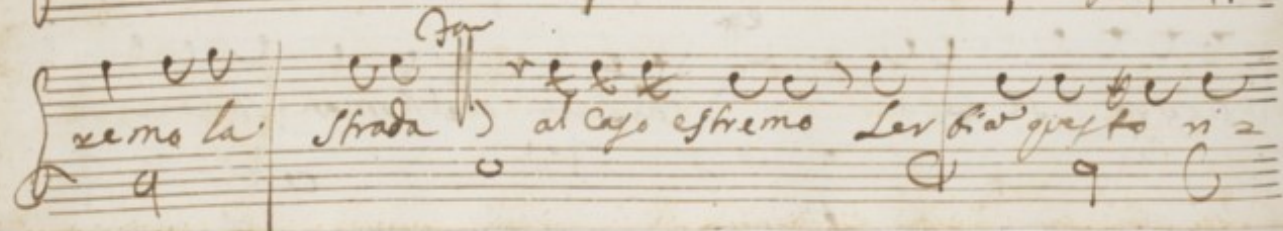 remo la strada al caso estremo Serbiam questo ri=